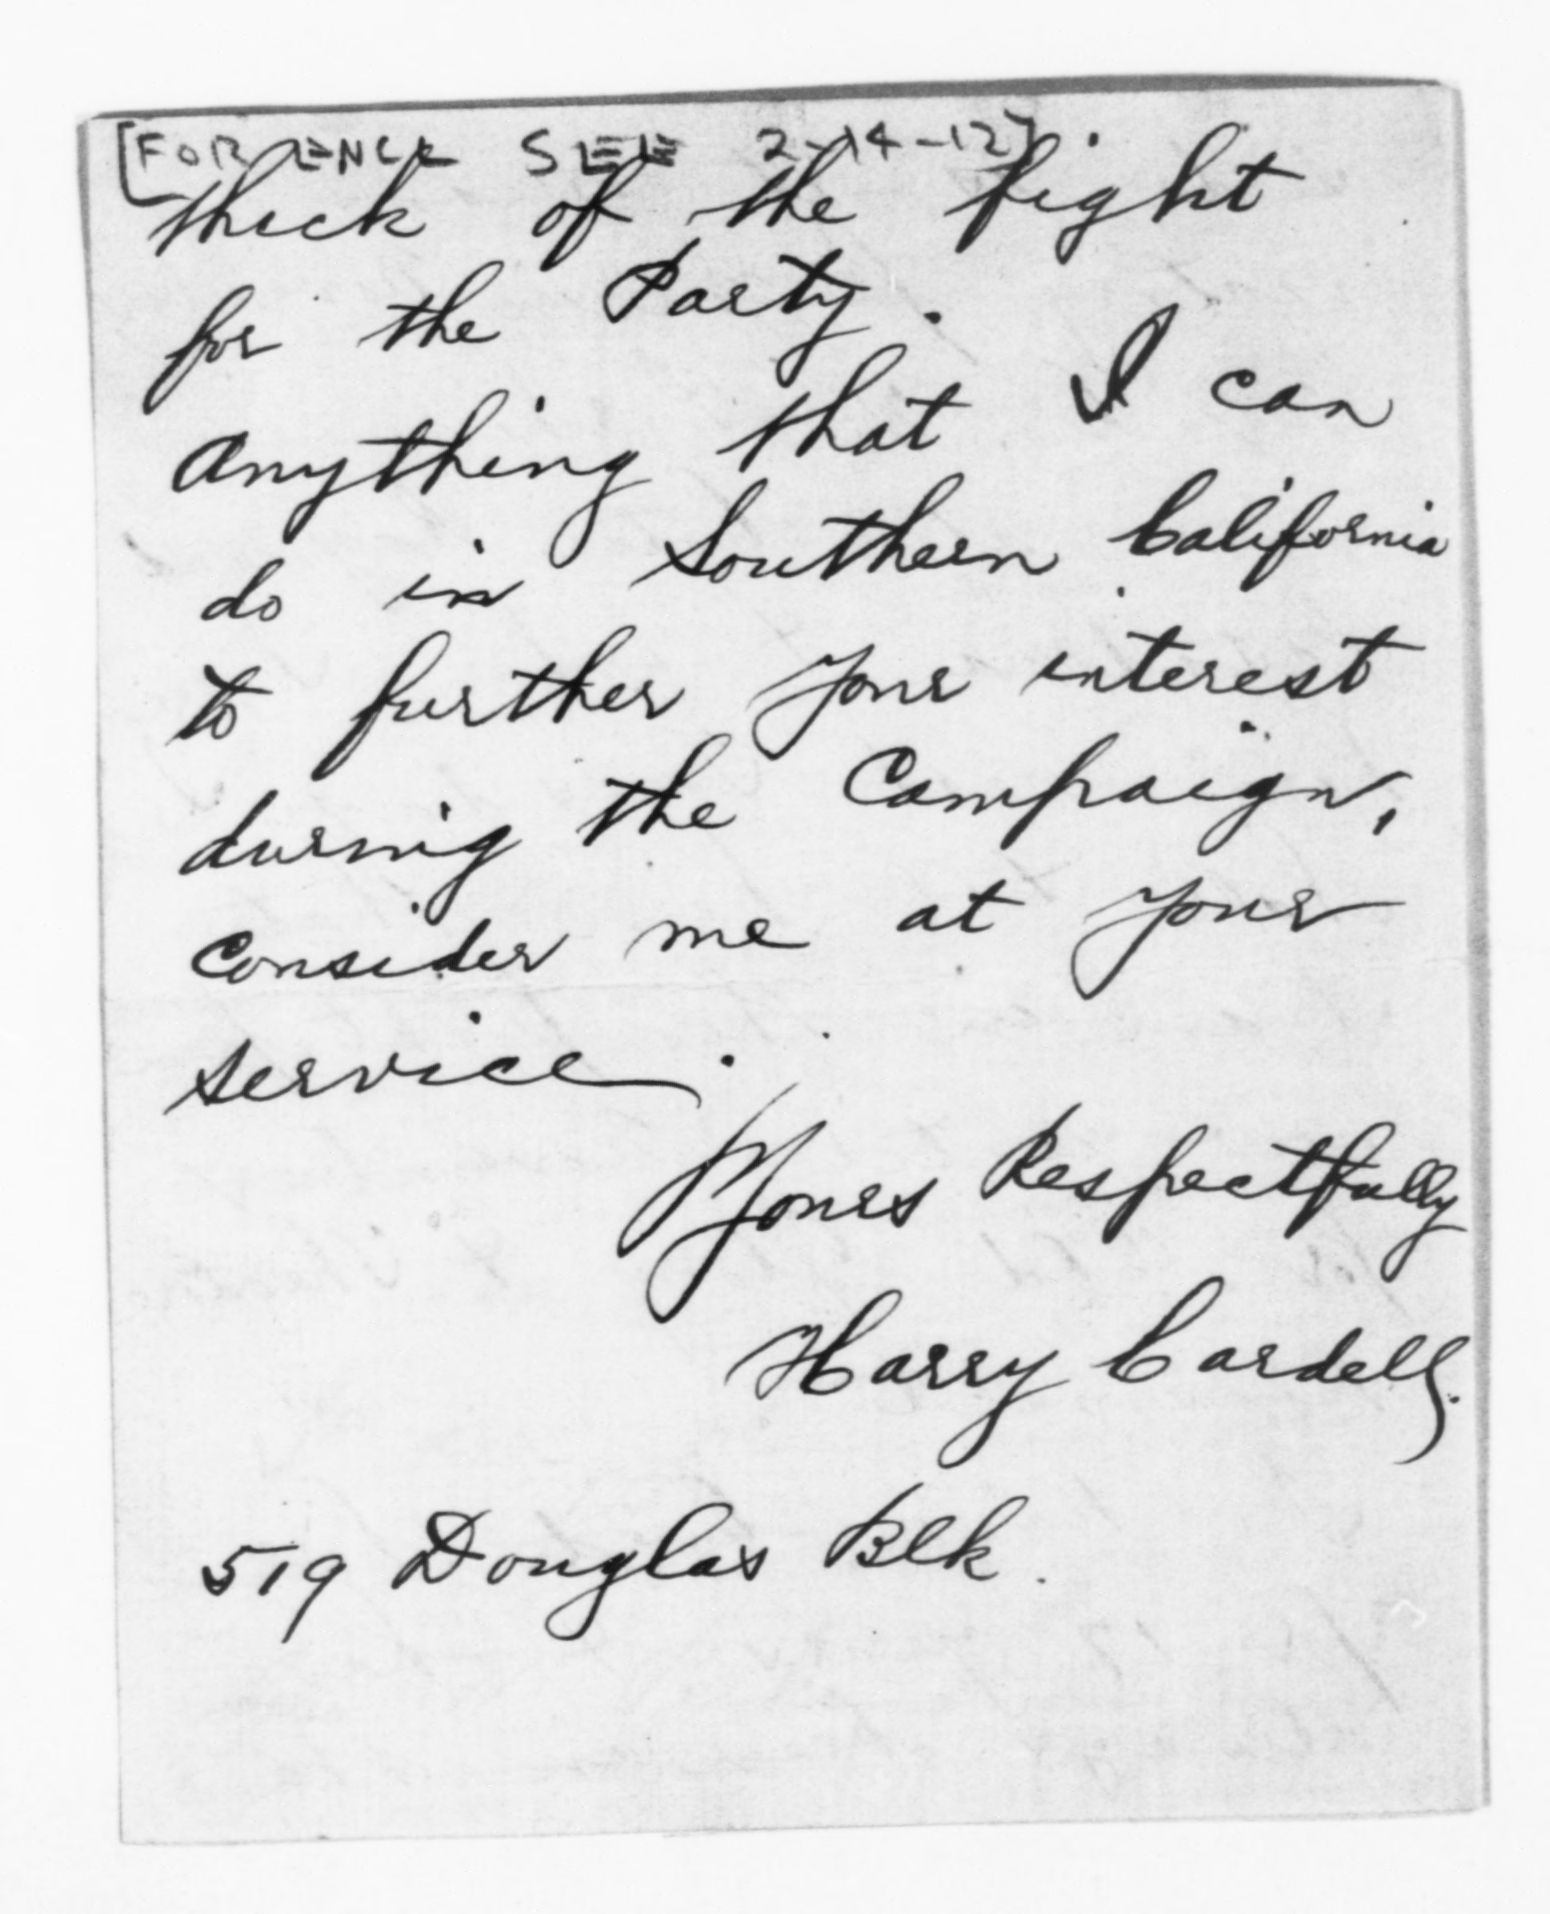 [FOR ENCL SEE 2-14-12]
thick of the fight
for the Party.
Anything that I can
do in Southern California
to further your interest
during the Campaign,
Consider me at your
service.
Yours Respectfully
Harry Cardell.
519 Douglas Blk.